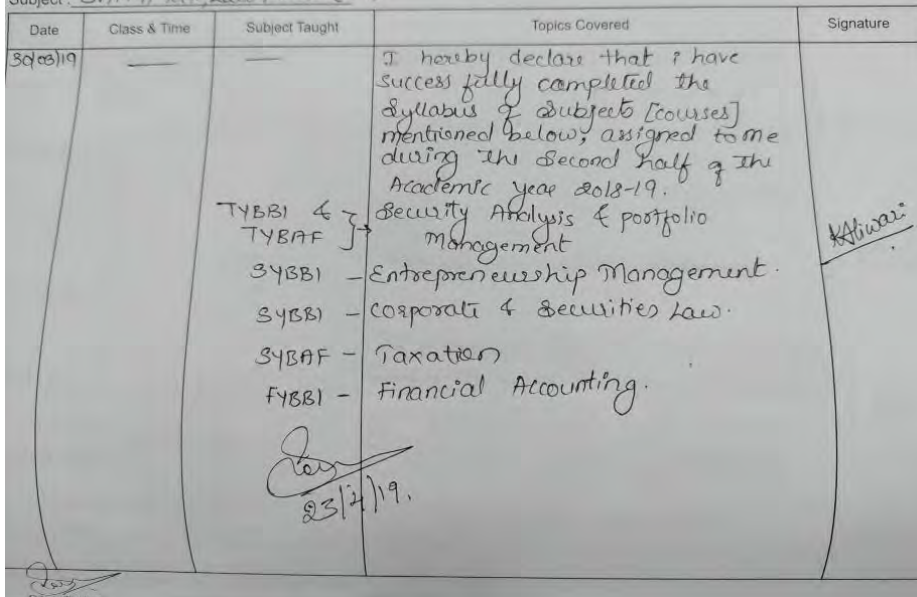 Subject :
Date Class & Time Subject Taught Topics Covered Signature
30/03/19 — — I hereby declare that i have
successfully completed the
Syllabus of Subjects [courses]
mentioned below, assigned to me
during the Second half of the
Academic year 2018-19.
TYBBI & Security Analysis & portfolio
TYBAF Management
SYBBI - Entrepreneurship Management.
SYBBI - Corporate & Securities Law.
SYBAF - Taxation
FYBBI - Financial Accounting.
23/4/19.